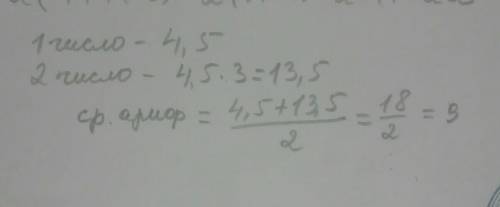 1 число - 4,5
2 число - 4,5 · 3 = 13,5
ср. ариф = (4,5 + 13,5) / 2 = 18 / 2 = 9